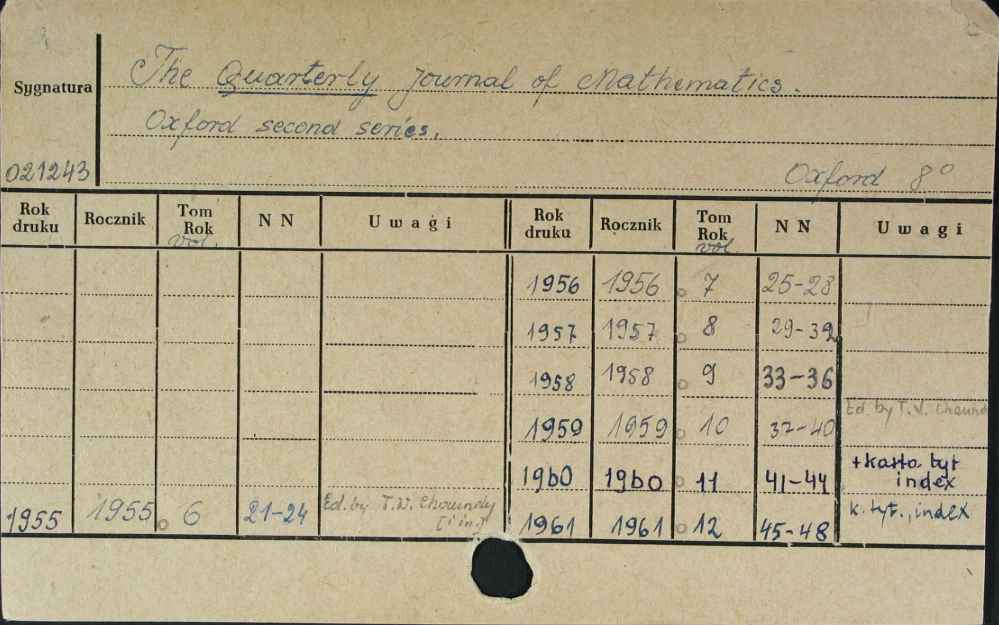 The Quarterly Journal of Mathematics.
Sygnatura
Oxford second series.
021243
Oxford 8°
Rok druku Rocznik Tom Rok vol. NN Uwagi Rok druku Rocznik Tom Rok vol NN Uwagi
1956 1956 7 25-28
1957 1957 8 29-32
1958 1958 9 33-36
1959 1959 10 37-40 Ed. by T.W. Chaund
1960 1960 11 41-44 + karta tyt index
1955 1955 6 21-24 Ed. by T.W. Chaundy [i in.] 1961 1961 12 45-48 k. tyt., index